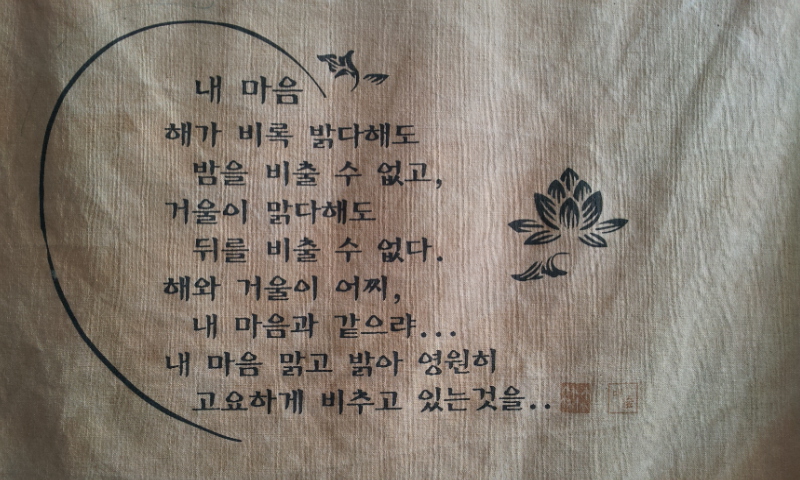 내 마음
해가 비록 밝다해도
밤을 비출 수 없고,
거울이 맑다해도
뒤를 비출 수 없다.
해와 거울이 어찌,
내 마음과 같으랴...
내 마음 맑고 밝아 영원히
고요하게 비추고 있는것을..